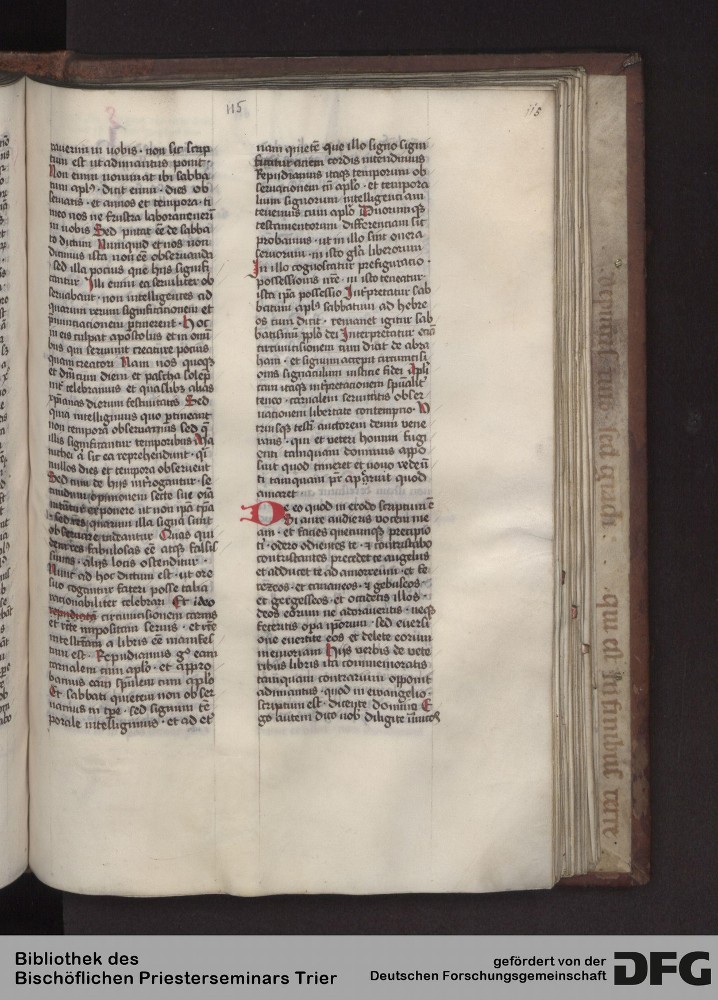 115
113
tauerim in uobis · non sic scrip
tum est ut adimantus ponit ·
Non enim nominat ibi sabba
tum apl's · dicit enim · dies ob
seruatis · et annos et tempora · ti
meo uos ne frustra laborauerim
in uobis Sed putat eē de sabba
to dictum Numquid et nos non
dicimus ista non eē obseruanda
· sed illa pocius que hijs signifi
cantur · Illi enim ea seruiliter ob
seruabant · non intelligentes ad
quarum rerum significationem et
pnunciationem ptinerent · Hoc
in eis culpat apostolus et in omi
bus qui seruiunt creature pocius
quam creatori Nam nos quoqꝫ
et dnicum diem et pascha solep
nit' celebramus et quaslibꝫ alias
xp̄ianas dierum festiuitates Sed
quia intelligimus quo ptineant
non tempora obseruamus sed q̄
illis significantur temporibus Ma
nichei ā sic ea reprehendunt · q̄i
nullos dies et tempora obseruent
Sed cum de hijs introgantur · se
cundum opinionem secte sue oīa
conātur exponere ut non ip̄a tp̄a
· sed res quarum illa signa sunt
obseruare uideantur Quas qui
dem res fabulosas eē atqꝫ falsis
simas · alijs locis ostenditur ·
Nunc ad hoc dictum est · ut ore
suo cogantur fateri posse talia
racionabiliter celebrari Et ideo
repudiata circumcisionem carnis
et r̄cte impositam seruis · et r̄cte
intellectam a libris eē manifes
tum est · Repudiamus gͦ eam
carnalem cum aplo · et appro
bamus eam sp̄ulem cum aplo
Et sabbati quietem non obser
uamus in tp̄e · sed signum tē
porale intelligimus · et ad et
nam quietē que illo signo signi
ficatur aciem cordis intendimus
Repudiamus itaqꝫ temporum ob
seruationem cū aplo · et tempora
lium signorum intelligenciam
tenemus cum aplo Duorumqꝫ
testamentorum differenciam sic
probamus · ut in illo sint onera
seruorum · in isto gla liberorum
In illo cognoscatur prefiguracio ·
possessionis nr̄e · in isto teneatur
ista ip̄a possessio Int'pretatur sab
batum apl's sabbatum ad hebre
os cum dicit · remanet igitur sab
batismus pplo dei Interpretatur etiā
circumcisionem cum dicit de abra
ham · et signum accepit circumcisi
onis signaculum iusticie fidei Apli
cam itaqꝫ int'pretationem spūalit'
teneo · carnalem seruitutis obser
uationem libertate contempno · U
triusqꝫ testi auctorem deum vene
ramur · qui et veteri homini fugi
enti tamquam dominus apposu
suit quod timeret et nouo redeū
ti tamquam pr̄ apperuit quod
amaret
De eo quod in exodo scriptum ē
Si ante audieris vocem me
am · et facies quecumqꝫ precipio
ti · odero odientes te · et contristabo
contristantes precedet te angelus
et adducet te ad amoreum · et fe
rezeos · et cananeos · et gebuseos ·
et gergesseos · et occidetis illos ·
deos eorum ne adoraueritis · neqꝫ
feceritis opa ip̄orum · sed euersi
one euertite eos et delete eorum
memoriam Hijs verbis de vete
ribus libris ita commemoratis
tamquam contrarium opponit
adimantus · quod in ewangelio ·
scriptum est · dicente domino E
go autem dico uob diligite inimicos
Bibliothek des
Bischöflichen Priesterseminars Trier
gefördert von der
Deutschen Forschungsgemeinschaft
DFG